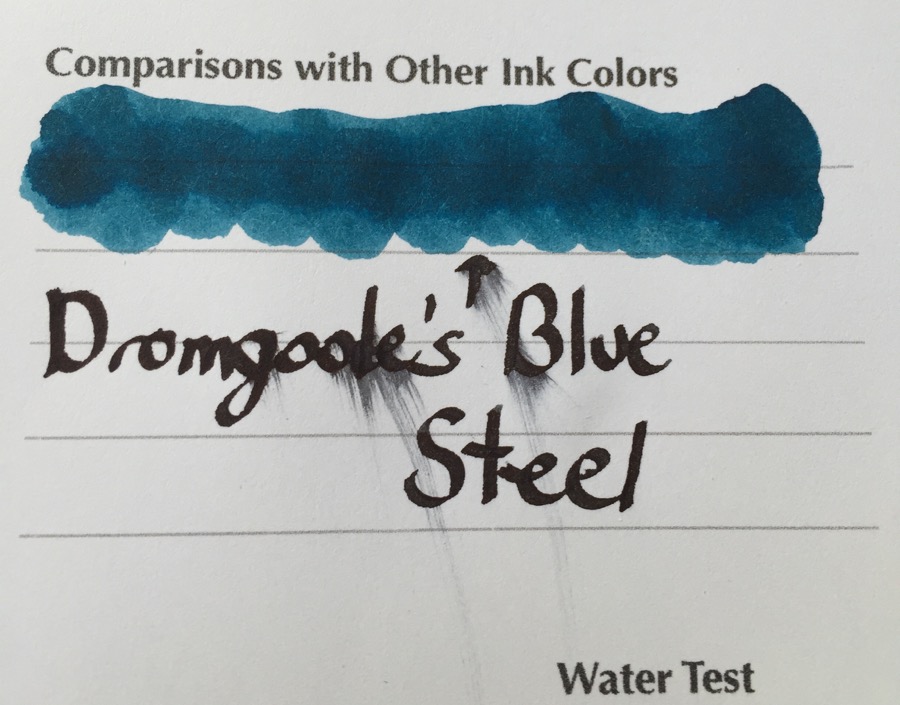 Comparisons with Other Ink Colors
Dromgoole's Blue
Steel
Water Test